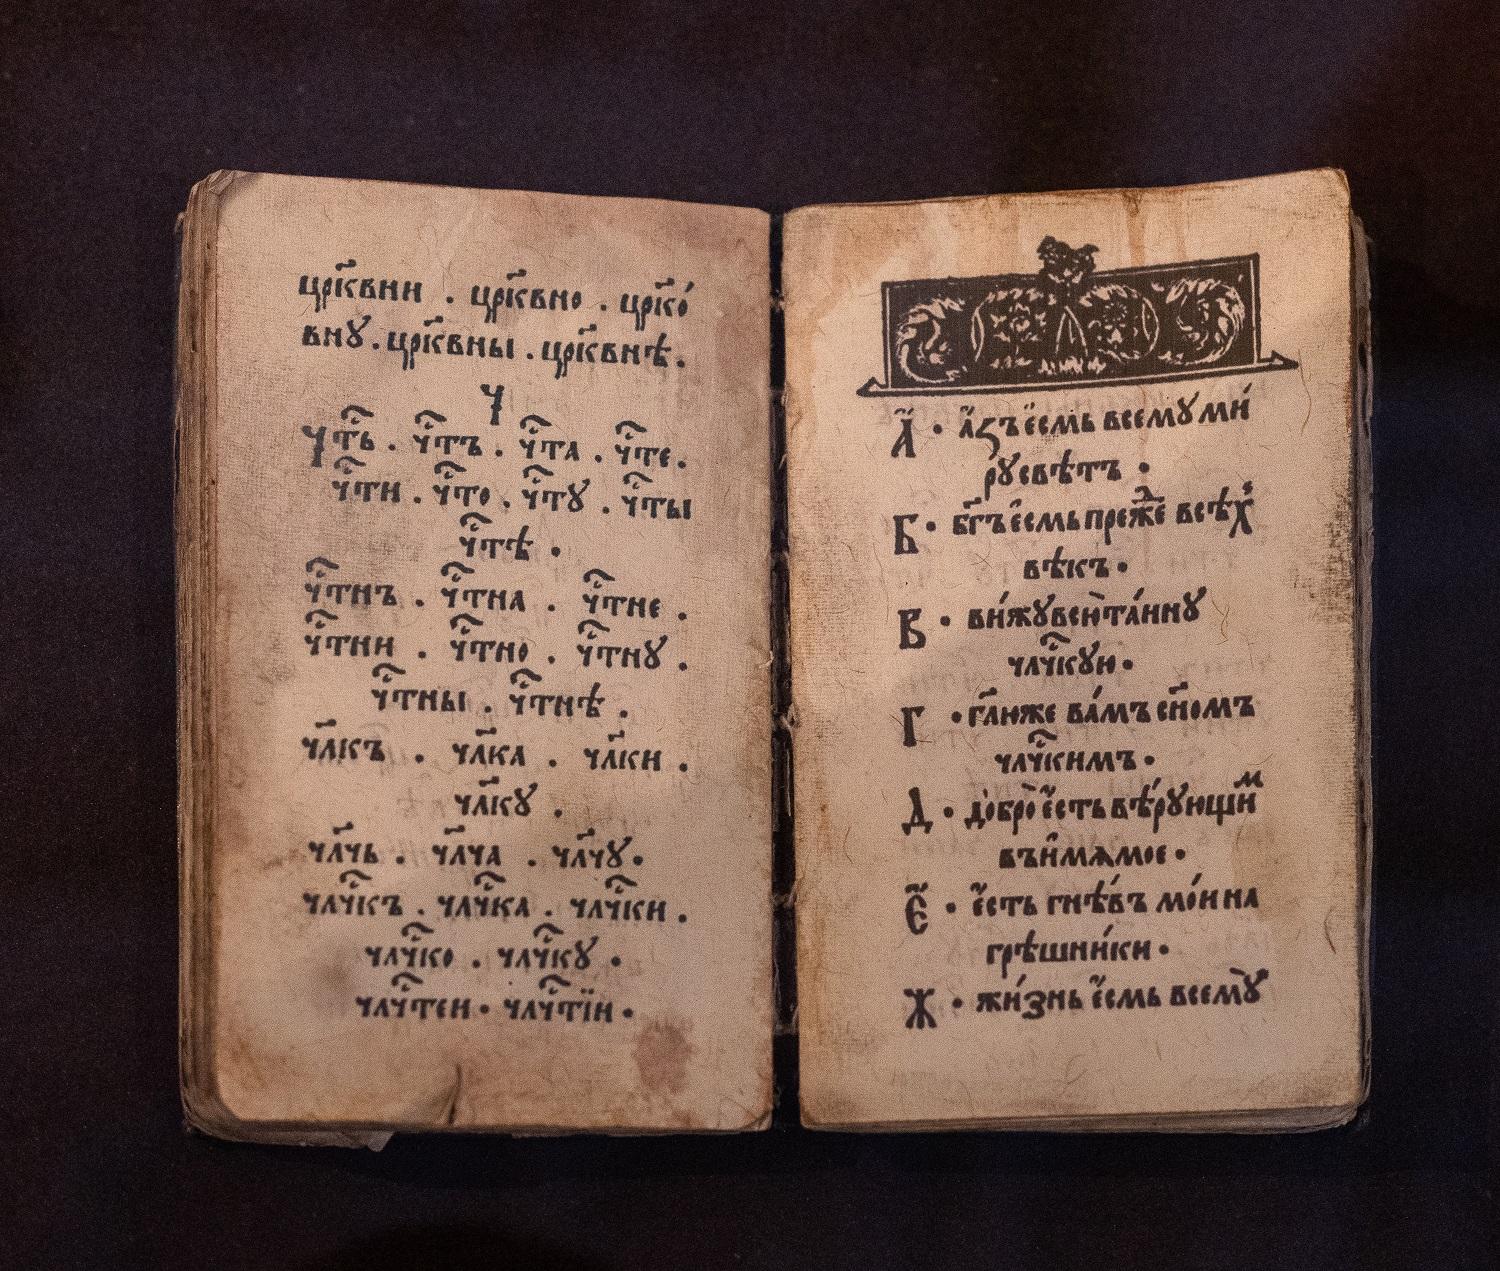 цр҃квни . цр҃квно . цр҃ко́
внꙋ . цр҃квны . цр҃квнѣ .
Ч
Чтⷭ҇ь . чтⷭ҇ъ . чтⷭ҇а . чтⷭ҇е .
чтⷭ҇и . чтⷭ҇о . чтⷭ҇ꙋ . чтⷭ҇ы
чтⷭ҇ѣ .
чтⷭ҇нъ . чтⷭ҇на . чтⷭ҇не .
чтⷭ҇ни . чтⷭ҇но . чтⷭ҇нꙋ .
чтⷭ҇ны . чтⷭ҇нѣ .
чл҃къ . чл҃ка . чл҃ки .
чл҃кꙋ .
чл҃чь . чл҃ча . чл҃чꙋ .
члчⷭ҇къ . члчⷭ҇ка . члчⷭ҇ки .
члчⷭ҇ко . члчⷭ҇кꙋ .
члчⷭ҇теи . члчⷭ҇тїи .
А҆́ . а҆́ꙁъ є҆́смь всемꙋ ми́
рꙋ свѣтъ .
Б . бг҃ъ є҆смь преⷤ҇е всѣⷯ҇
вѣкъ .
В . ви́жꙋ всю̀ та́инꙋ
члчⷭ҇кꙋю .
Г . гл҃юже ва́мъ сн҃омъ
члчⷭ҇кимъ .
Д . добро̀ є҆́сть вѣ́рꙋющиⷨ
въ и҆́мѧ мое .
Є҆́ . є҆́сть гнѣ́въ мо́и на
грѣшни́ки .
Ж . жи́знь є҆́смь всемꙋ̀